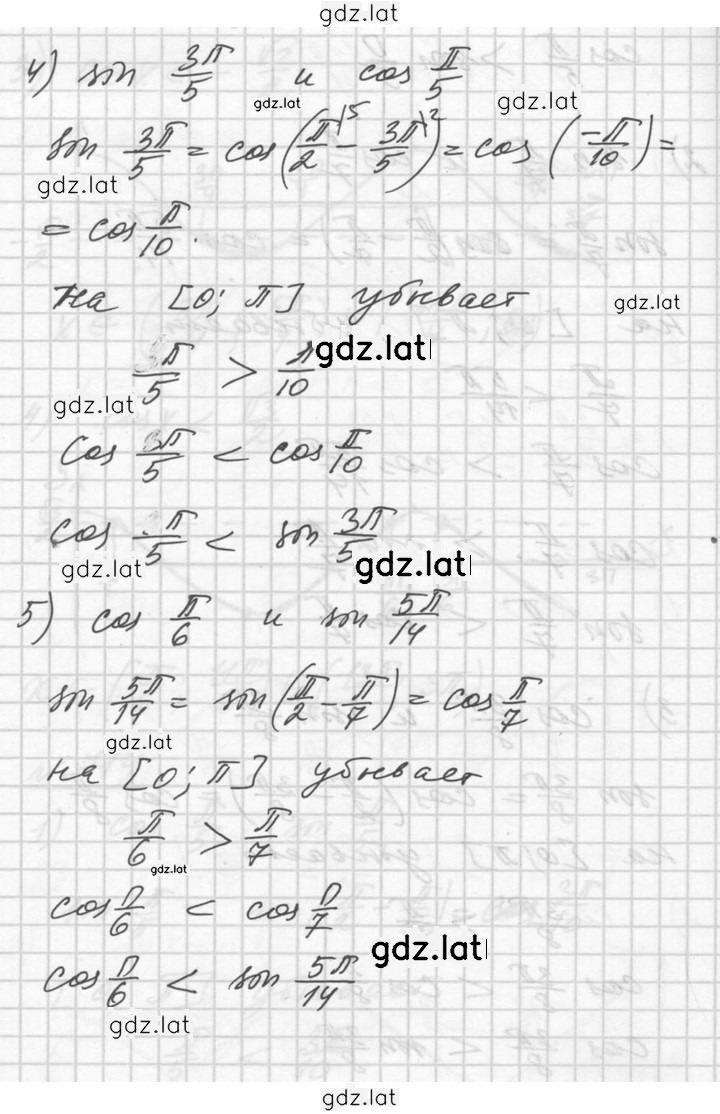 gdz.lat
4) sin 3π/5 и cos π/5
gdz.lat
gdz.lat
sin 3π/5 = cos(π/2|5 − 3π/5|2) = cos(−π/10) =
gdz.lat
= cos π/10.
на [0; π] убывает
gdz.lat
3π/5 > π/10
gdz.lat
gdz.lat
cos 3π/5 < cos π/10
cos π/5 < sin 3π/5
gdz.lat
gdz.lat
5) cos π/6 и sin 5π/14
sin 5π/14 = sin(π/2 − π/7) = cos π/7
gdz.lat
на [0; π] убывает
π/6 > π/7
gdz.lat
cos π/6 < cos π/7
gdz.lat
cos π/6 < sin 5π/14
gdz.lat
gdz.lat